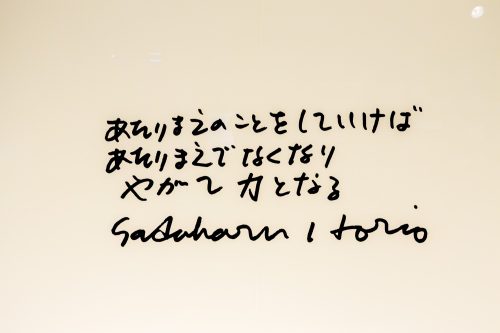 あたりまえのことをしていけば
あたりまえでなくなり
やがて力となる